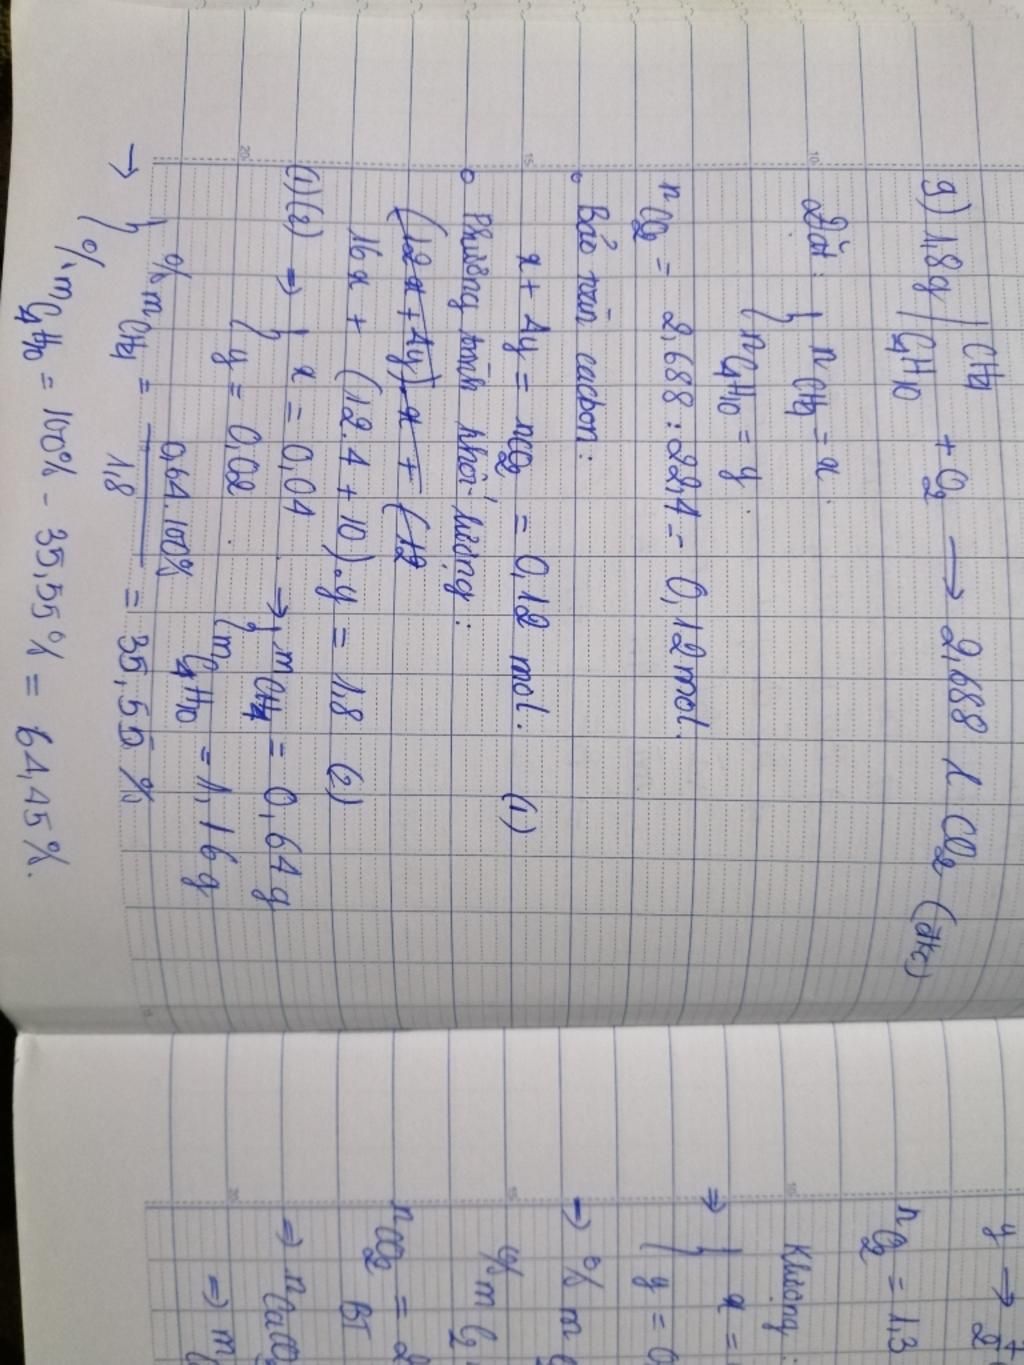 g) 1,8g { CH4
C4H10 + O2 → 2,688 l CO2 (đkc)
Đặt: { nCH4 = x
nC4H10 = y
nCO2 = 2,688 : 22,4 = 0,12 mol.
Bảo toàn cacbon:
x + 4y = nCO2 = 0,12 mol. (1)
Phương trình khối lượng:
(12x + 4y).x + (12
16x + (12.4 + 10).y = 1,8 (2)
(1)(2) ⇒ { x = 0,04 → { mCH4 = 0,64g
y = 0,02 mC4H10 = 1,16g
→ { %mCH4 = 0,64.100% / 1,8 = 35,55%
%mC4H10 = 100% - 35,55% = 64,45%.
nO2 = 1,3
Khương
⇒ { x =
y = 0
→ % m
% m
nCO2 = 2
BT
⇒ nCaCO3
⇒ m